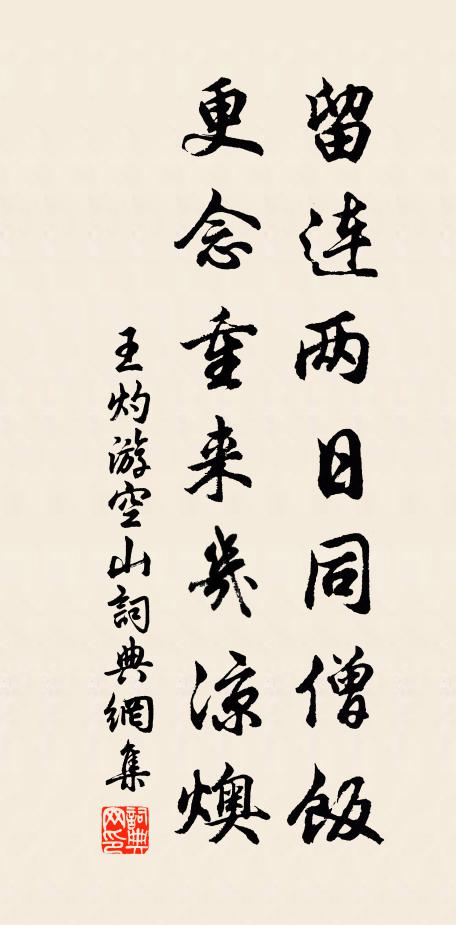 留连两日同僧饭
更念重来几凉燠
王灼游空山詞典網集
詞典
网印